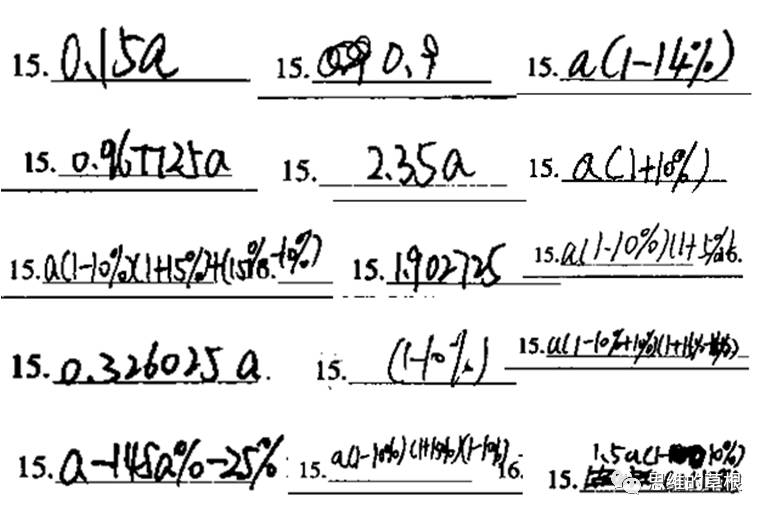 15. 0.15a 15. 0.9 15. a(1-14%)
15. 0.967725a 15. 2.35a 15. a(1+10%)
15. a(1-10%)(1+15%)+(15%-10%) 15. 1.902725 15. a(1-10%)(1+5%)
15. 0.326025a. 15. (1-10%) 15. a(1-10%+10%)(1+15%
15. a-145a%-25% 15. a(1-10%)(1+15%)(1-10%) 16. 15. 1.5a(1-10%)
思维的草根